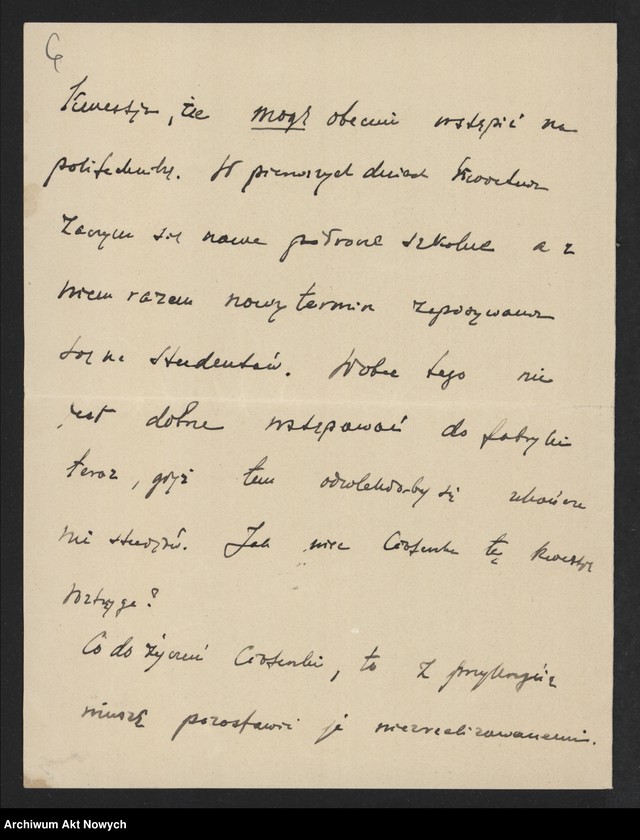 6
Kwestja, że mogę obecnie wstąpić na
politechnikę. W pierwszych dniach Kwietnia
zacznie się nowe półrocze szkolne a z
niem razem nowy termin zapisywania
się na studentów. Wobec tego nie
jest dobrze wstępować do fabryki
teraz, gdyż tem odwlekłoby się ukończe
nie studjów. Jak więc Ciotunia tę kwestję
roztrzyga?
Co do życzeń Ciotuni, to z przykrością
muszę pozostawić je niezrealizowanemi.
Archiwum Akt Nowych